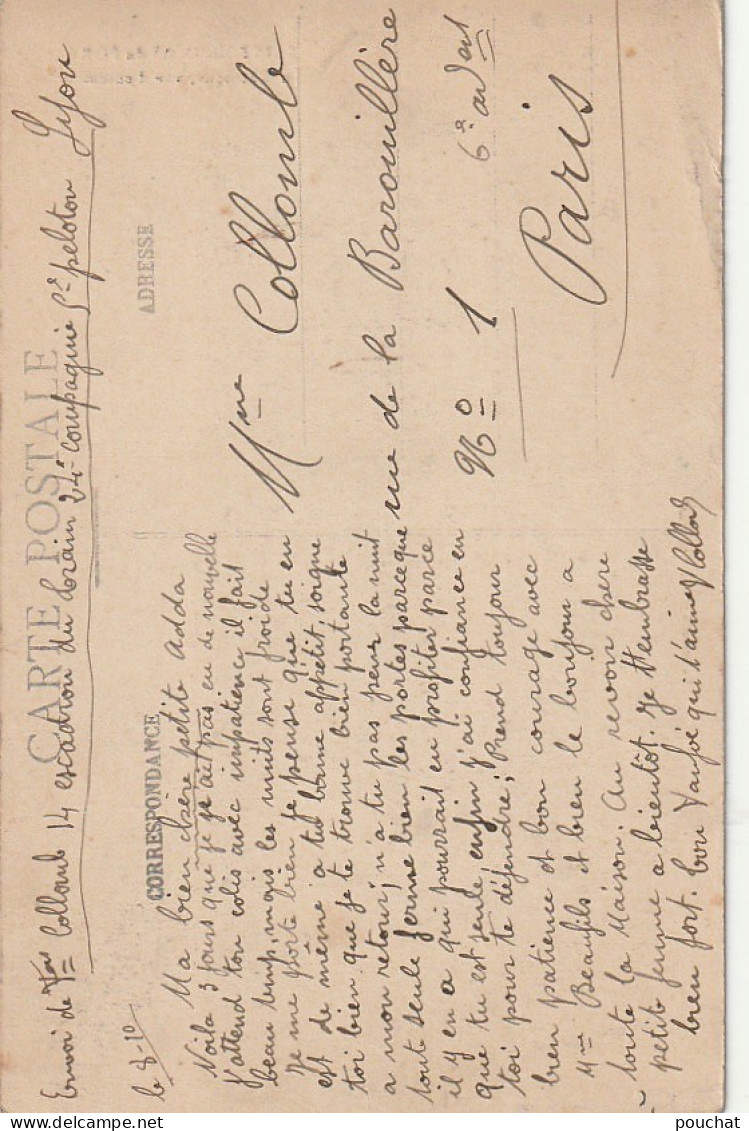 CARTE POSTALE
Envoi de Collomb 14 escadron du train 24e compagnie 5e peloton Lyon
CORRESPONDANCE
ADRESSE
le 8-10
Ma bien chère petite Adda
Voila 3 jours que je ai pas eu de nouvelle
J'attend ton colis avec impatience, il fait
beau temp, mais les nuits sont froide
Je me porte bien je pense que tu en
est de même a tu bonne appétit, soigne
toi bien que je te trouve bien portante
a mon retour, n'a tu pas peur la nuit
tout seule ferme bien les portes parce que
il y en a qui pourrait en profiter parce
que tu est seule enfin j'ai confiance en
toi pour te défendre; Prend toujour
bien patience et bon courage avec
Mme Beaufils et bien le boujour a
toute la Maison. Au revoir chère
petit femme a bientôt. Je t'embrasse
bien fort. ton qui t'aime Collomb
Mme Collomb
rue de la Barouillère
No 1 6e ardart
Paris
pouchat